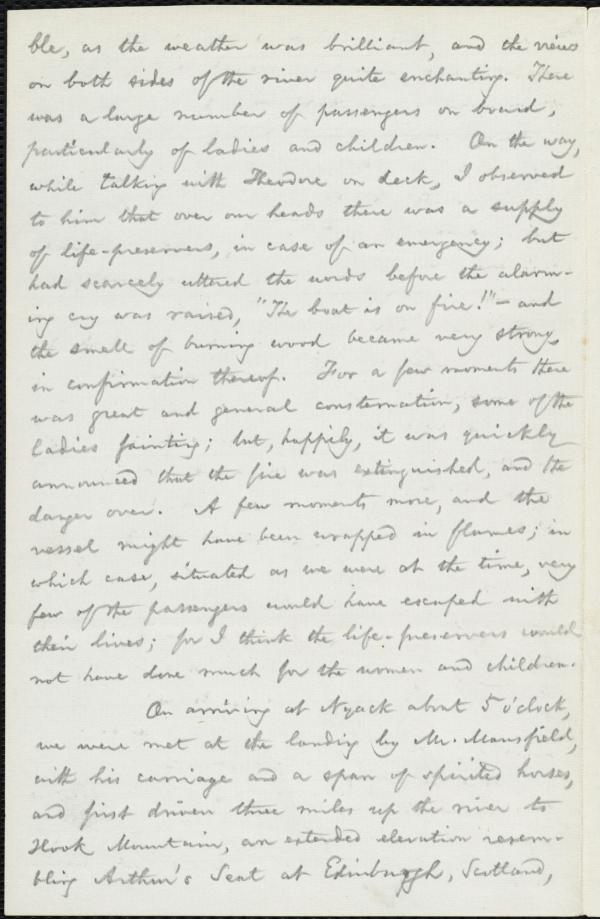 ble, as the weather was brilliant, and the views
on both sides of the river quite enchanting. There
was a large number of passengers on board,
particularly of ladies and children. On the way,
while talking with Theodore on deck, I observed
to him that over our heads there was a supply
of life-preservers, in case of an emergency; but
had scarcely uttered the words before the alarm-
ing cry was raised, "The boat is on fire!" — and
the smell of burning wood became very strong,
in confirmation thereof. For a few moments there
was great and general consternation, some of the
ladies fainting; but, happily, it was quickly
announced that the fire was extinguished, and the
danger over. A few moments more, and the
vessel might have been wrapped in flames; in
which case, situated as we were at the time, very
few of the passengers would have escaped with
their lives; for I think the life-preservers would
not have done much for the women and children.
On arriving at Nyack about 5 o'clock,
we were met at the landing by Mr. Mansfield,
with his carriage and a span of spirited horses,
and first driven three miles up the river to
Hook Mountain, an extended elevation resem-
bling Arthur's Seat at Edinburgh, Scotland,